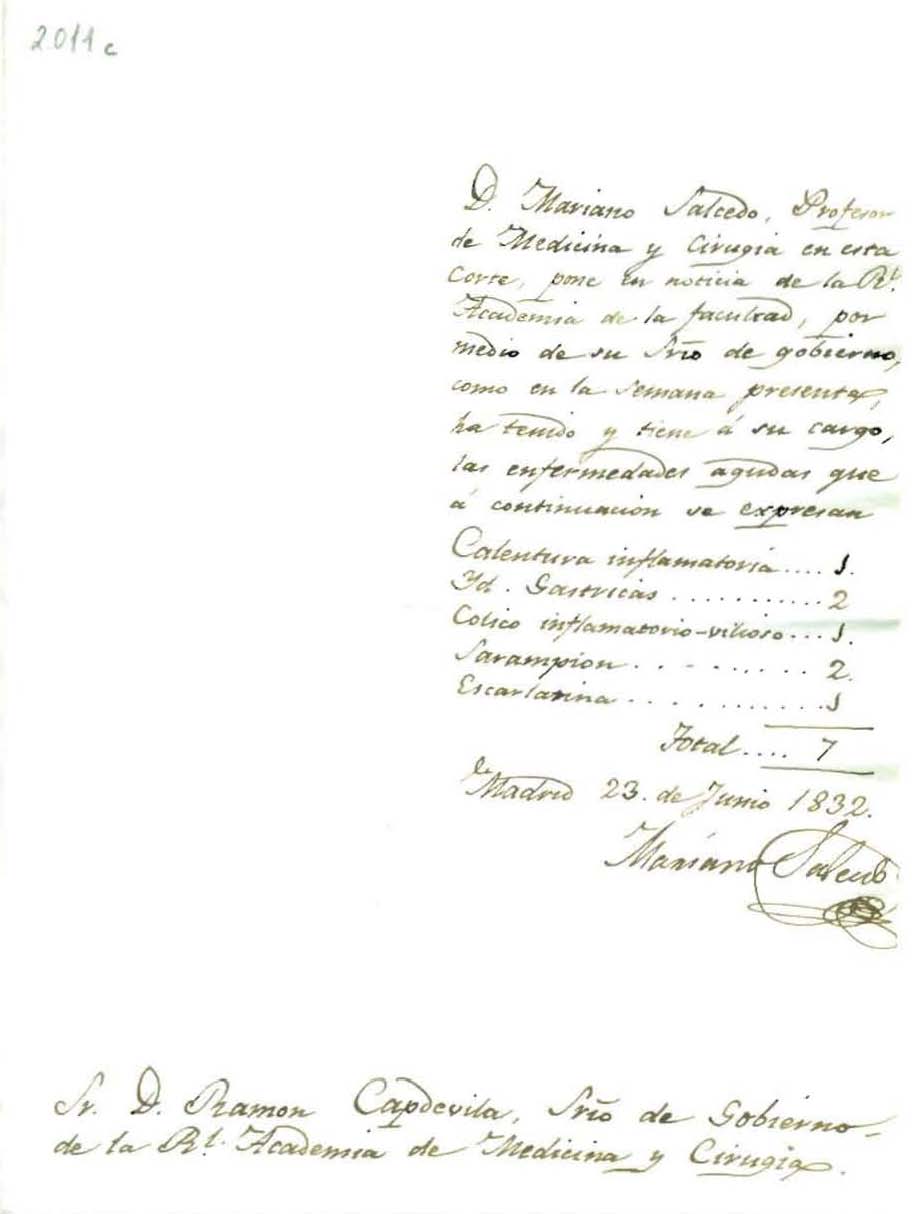 2011 c
D. Mariano Salcedo, Profesor
de Medicina y Cirugia en esta
Corte, pone en noticia de la Rl.
Academia de la facultad, por
medio de su Srio de gobierno,
como en la semana presente,
ha tenido y tiene á su cargo,
las enfermedades agudas que
á continuacion se expresan
Calentura inflamatoria .... 1.
Yd. Gastricas ........... 2
Colico inflamatorio-vilioso ... 1.
Sarampion ......... 2.
Escarlatina ............ 1
Total .... 7
Madrid 23. de Junio 1832.
Mariano Salcedo
Sr. D. Ramon Capdevila, Srio de Gobierno
de la Rl. Academia de Medicina y Cirugia.